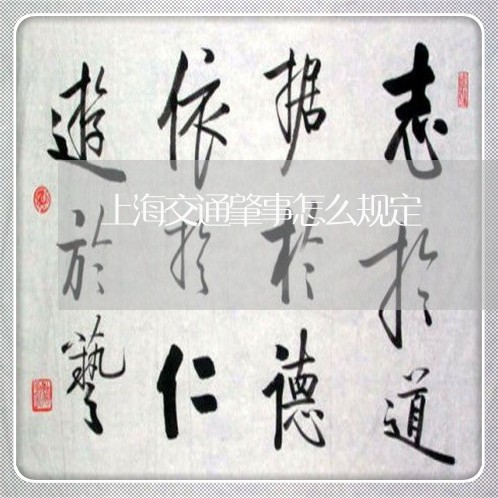 志於道
据於德
依於仁
遊於藝
上海交通肇事怎么规定